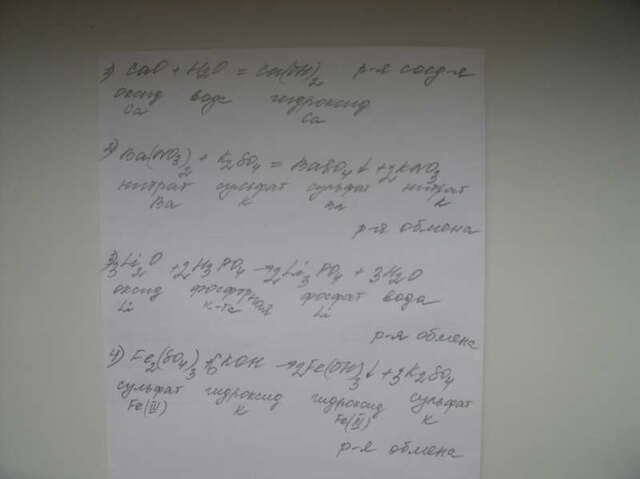 1) CaO + H2O = Ca(OH)2 р-я соед-я
оксид вода гидроксид
Ca Ca
2) Ba(NO3)2 + K2SO4 = BaSO4↓ + 2KNO3
нитрат сульфат сульфат нитрат
Ba K Ba K
р-я обмена
3) 3Li2O + 2H3PO4 → 2Li3PO4 + 3H2O
оксид фосфорная фосфат вода
Li к-та Li
р-я обмена
4) Fe2(SO4)3 + 6KOH → 2Fe(OH)3↓ + 3K2SO4
сульфат гидроксид гидроксид сульфат
Fe(III) K Fe(III) K
р-я обмена